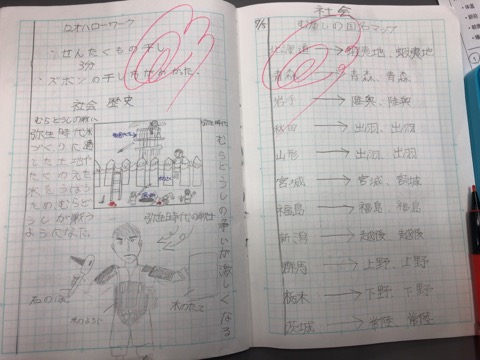 ロオハローワーク
・せんたくもの干し
3分
・ズボンの干し
社会 歴史
むらどうしの戦い
弥生時代米
づくりに適
した土地や
たくわえた
水をうばう
ため、むらど
うしが戦う
ようになった。
むらどうしの争いが激しくなる
弥生時代の戦士
木のたて
木のよろい
社会
北海道 → 蝦夷地、蝦夷地
青森 → 青森、青森
岩手 → 陸奥、陸奥
秋田 → 出羽、出羽
山形 → 出羽、出羽
宮城 → 宮城、宮城
福島 → 福島、福島
新潟 → 越後、越後
群馬 → 上野、上野
栃木 → 下野、下野
茨城 → 常陸、常陸